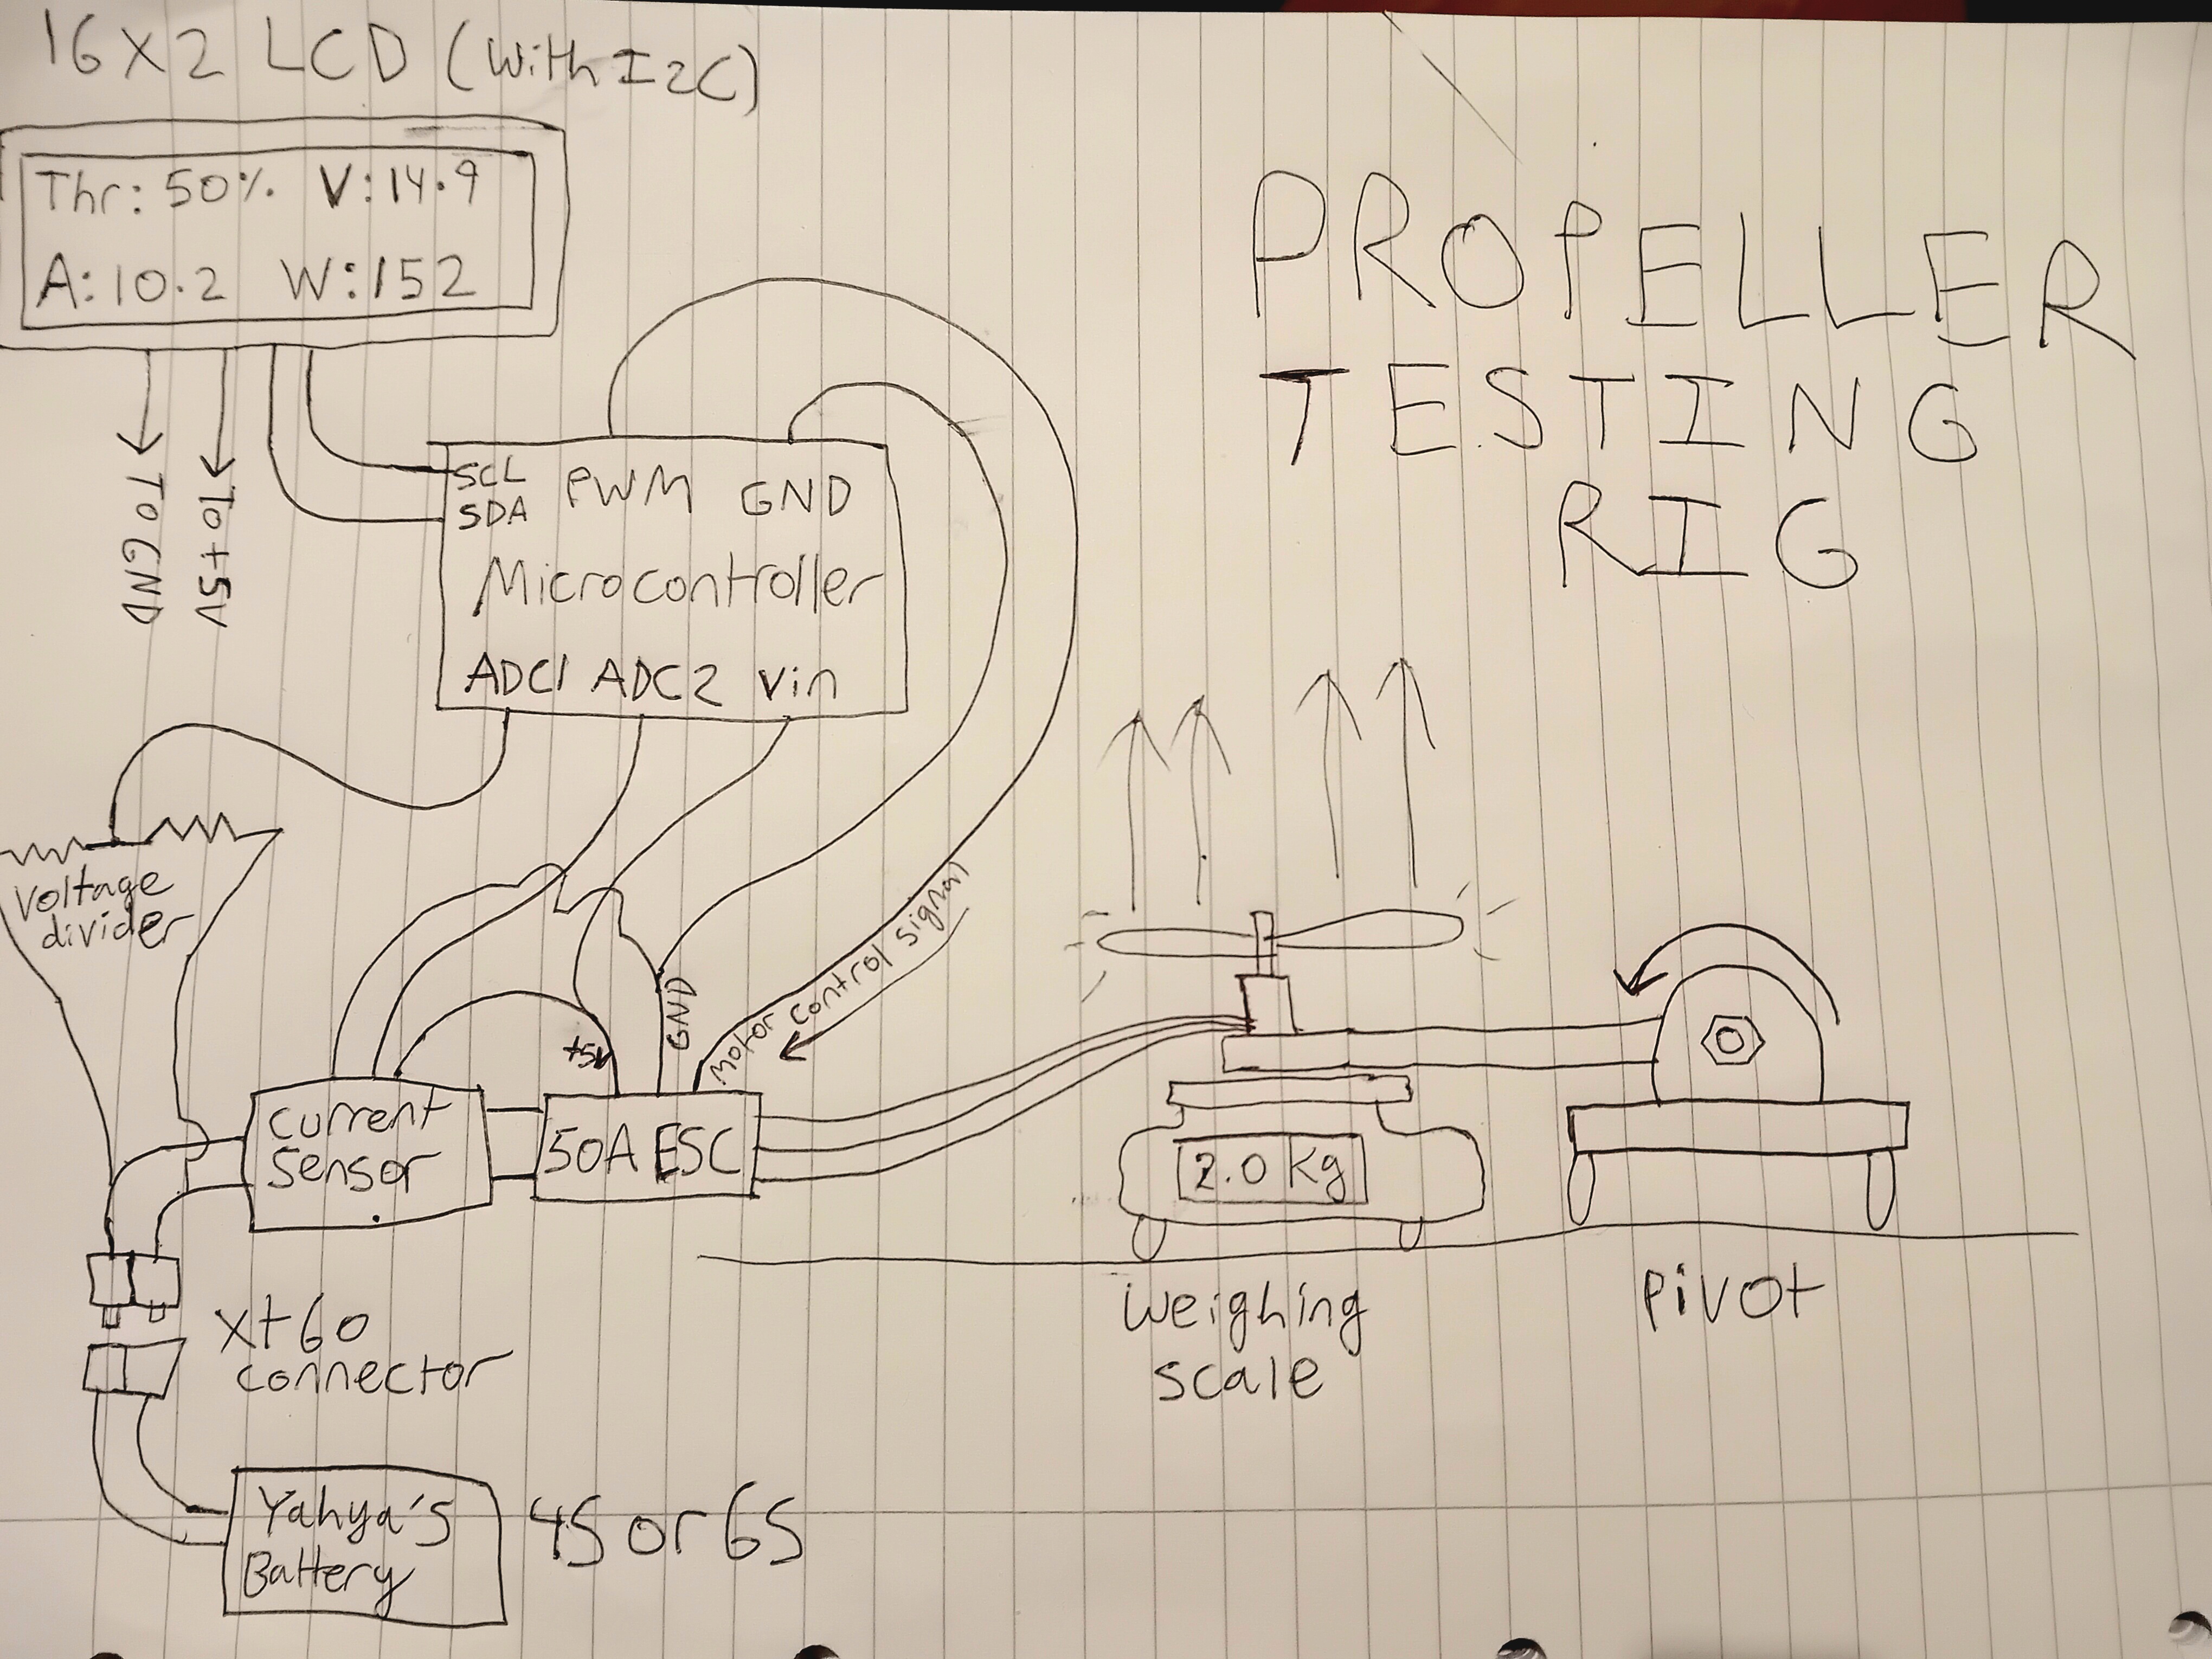 16X2 LCD (with I2C)
Thr: 50% V:14.9
A:10.2 W:152
To GND
To +5V
PROPELLER
TESTING
RIG
SCL PWM GND
SDA
Microcontroller
ADC1 ADC2 Vin
Voltage
divider
+5V
GND
Motor control signal
Current
Sensor
50A ESC
2.0 Kg
Weighing
scale
Pivot
Xt60
connector
Yahya's
Battery
4S or 6S